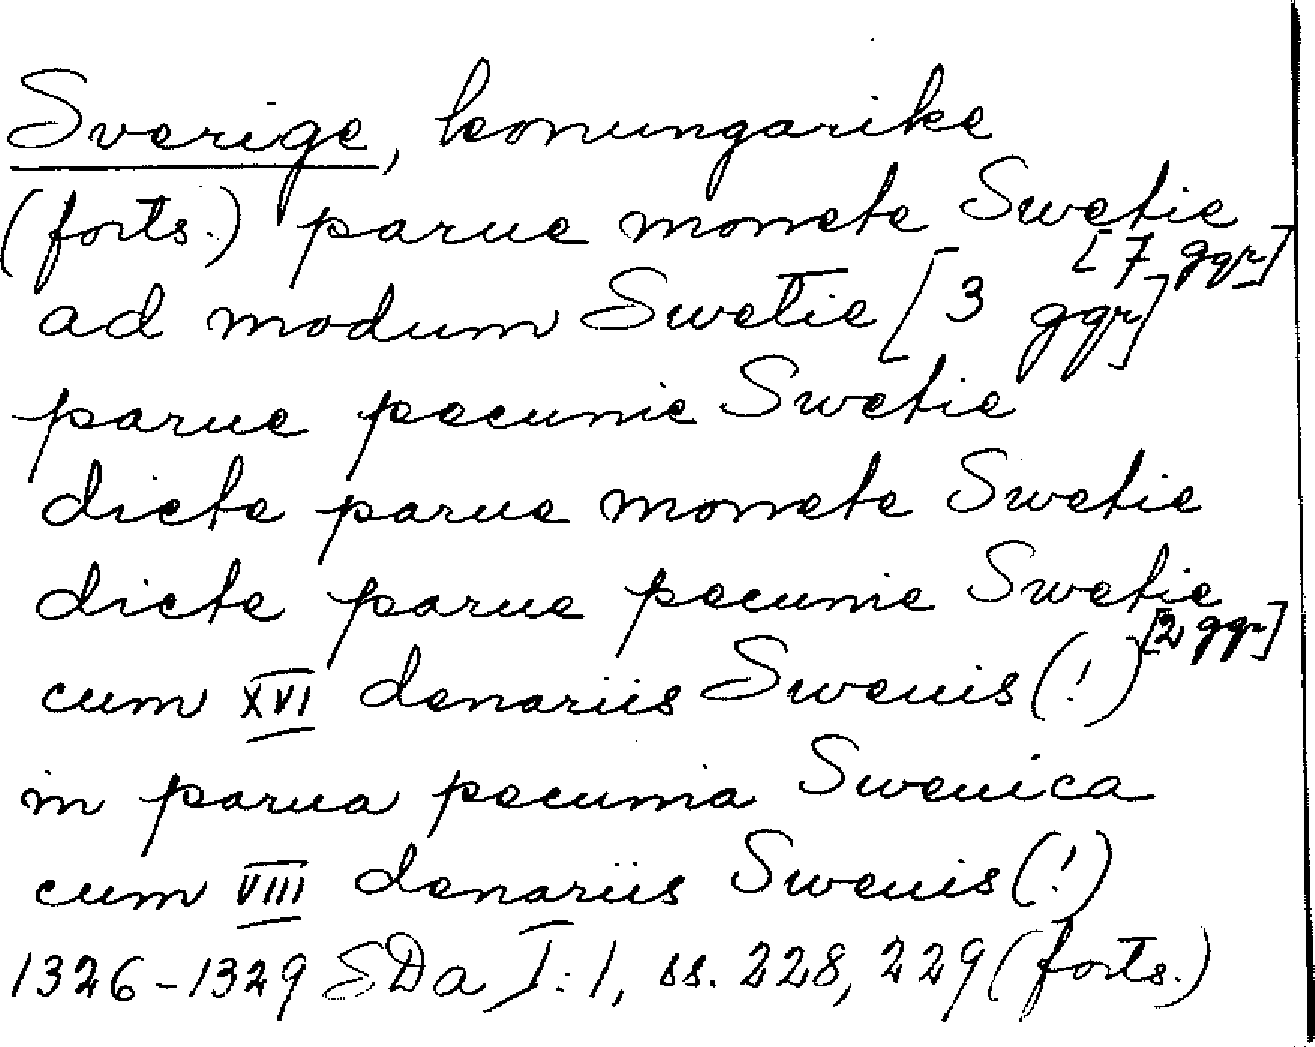 Sverige, konungarike
(forts.) parue monete Swetie [7 ggr]
ad modum Swetie [3 ggr]
parue pecunie Swetie
dicte parue monete Swetie
dicte parue pecunie Swetie [2 ggr]
cum XVI denariis Sweuis (!)
in parua pecunia Sweuica
cum VIII denariis Sweuis (!)
1326-1329 SDa I:1, ss. 228, 229 (forts.)